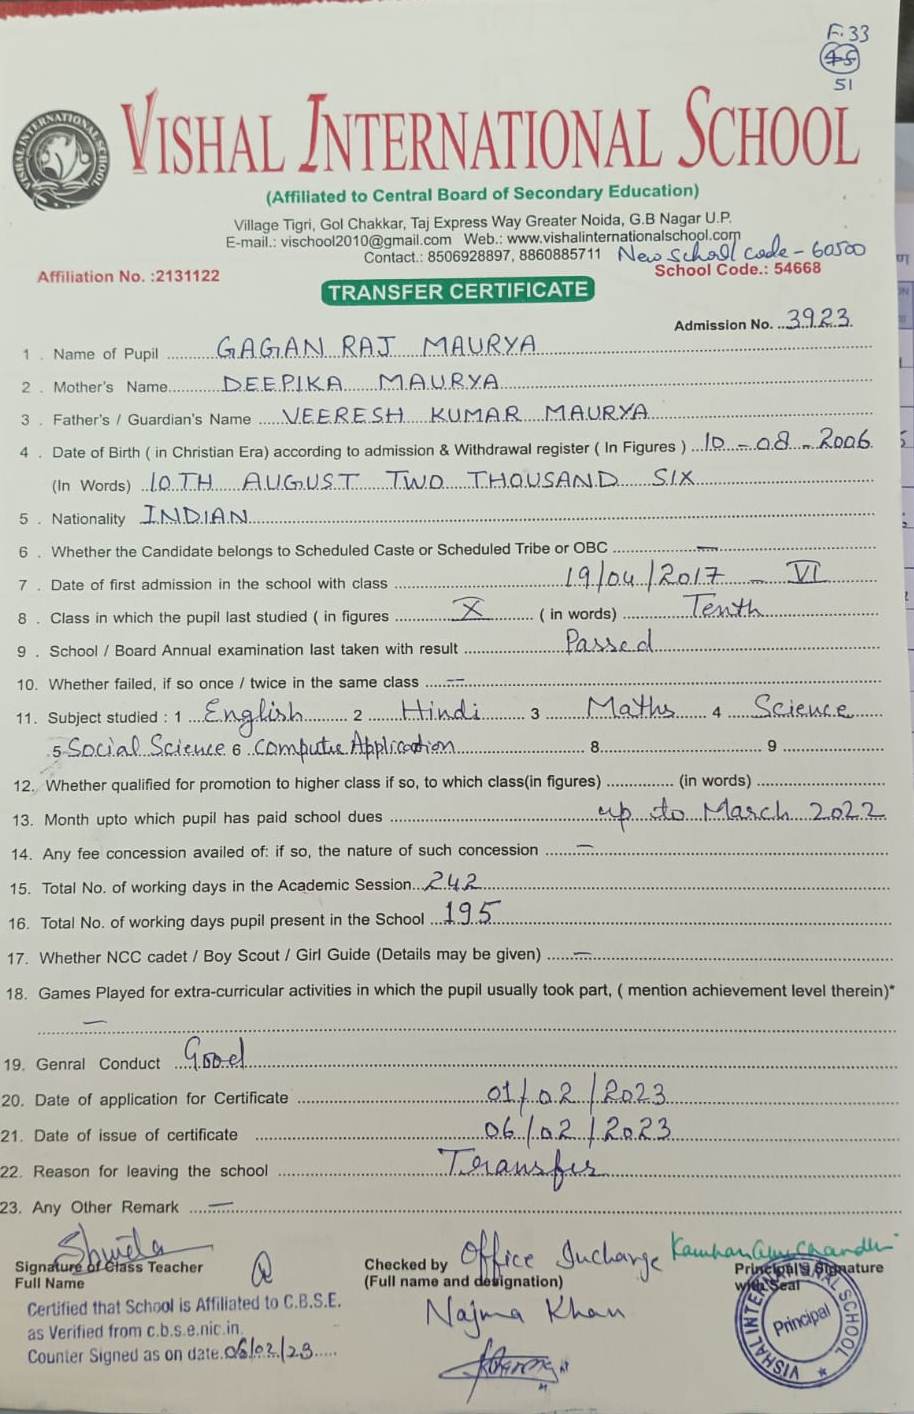 F. 33
45
51
VISHAL INTERNATIONAL SCHOOL
VISHAL INTERNATIONAL SCHOOL
(Affiliated to Central Board of Secondary Education)
Village Tigri, Gol Chakkar, Taj Express Way Greater Noida, G.B Nagar U.P.
E-mail.: vischool2010@gmail.com Web.: www.vishalinternationalschool.com
Contact.: 8506928897, 8860885711 New School code - 60500
Affiliation No. :2131122 School Code.: 54668
TRANSFER CERTIFICATE
Admission No. ..3923.
1 . Name of Pupil ..... GAGAN RAJ MAURYA
2 . Mother's Name..... DEEPIKA MAURYA
3 . Father's / Guardian's Name ..... VEERESH KUMAR MAURYA
4 . Date of Birth ( in Christian Era) according to admission & Withdrawal register ( In Figures ) ...10 - 08 - 2006
(In Words) 10TH AUGUST TWO THOUSAND SIX
5 . Nationality INDIAN
6 . Whether the Candidate belongs to Scheduled Caste or Scheduled Tribe or OBC ..... —
7 . Date of first admission in the school with class ..... 19/04/2017 - VI
8 . Class in which the pupil last studied ( in figures ..... X ..... ( in words) ..... Tenth
9 . School / Board Annual examination last taken with result ..... Passed
10. Whether failed, if so once / twice in the same class ..... --
11. Subject studied : 1 ... English ..... 2 ..... Hindi ..... 3 ..... Maths ..... 4 ..... Science
5 Social Science 6 Computer Application ..... 8 ..... 9 .....
12. Whether qualified for promotion to higher class if so, to which class(in figures) ..... (in words) .....
13. Month upto which pupil has paid school dues ..... up to March 2022
14. Any fee concession availed of: if so, the nature of such concession ..... —
15. Total No. of working days in the Academic Session...242
16. Total No. of working days pupil present in the School ...195
17. Whether NCC cadet / Boy Scout / Girl Guide (Details may be given) ..... —
18. Games Played for extra-curricular activities in which the pupil usually took part, ( mention achievement level therein)*
—
19. Genral Conduct ... Good
20. Date of application for Certificate ..... 01/02/2023
21. Date of issue of certificate ..... 06/02/2023
22. Reason for leaving the school ..... Transfer
23. Any Other Remark ..... —
Shweta
Signature of Class Teacher
Full Name
Checked by Office Incharge
(Full name and designation)
Najma Khan
Principal's Signature
with Seal
Certified that School is Affiliated to C.B.S.E.
as Verified from c.b.s.e.nic.in.
Counter Signed as on date.06/02/23.....
VISHAL INTERNATIONAL SCHOOL
Principal